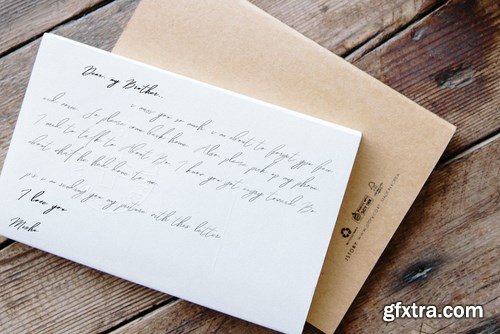 Dear, my Brother,
i miss you so much, i am about to forget your face
and name. So please come back home. Also, please pick up my phone
I need to talk to About Bo. I know you got angry toward Bo
about what he had done to me.
p.s : i'm sending you my picture with this letter
I love you
Micha
STORY
gfxtra.com